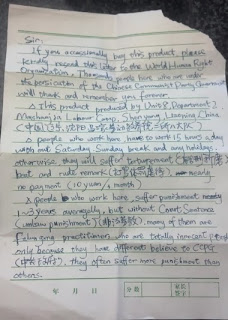 Sir:
If you occassionally buy this product, please
kindly resend this letter to the World Human Right
Organization. Thousands people here who are under
the persicution of the Chinese Communist Party Government
will thank and remember you forever.
This product produced by Unit 8, Department 2,
Masanjia Labour Camp, Shenyang, Liaoning, China.
(中国,辽宁,沈阳,马三家劳动教养院二所八大队)
people who work here have to work 15 hours a day
without Saturday, Sunday break and any holidays,
otherwise, they will suffer torturement (),
beat and rude remark (), nearly
no payment (10 yuan/1 month).
people who work here, suffer punishment nearly
1~3 years averagelly, but without Court Sentence
(unlaw punishment) (非法劳教), many of them are
Falun gong practitioners, who are totally innocent people
only because they have different believe to CCPG
(), they often suffer more punishment than
others.
年 月 日
分数
家长
签字